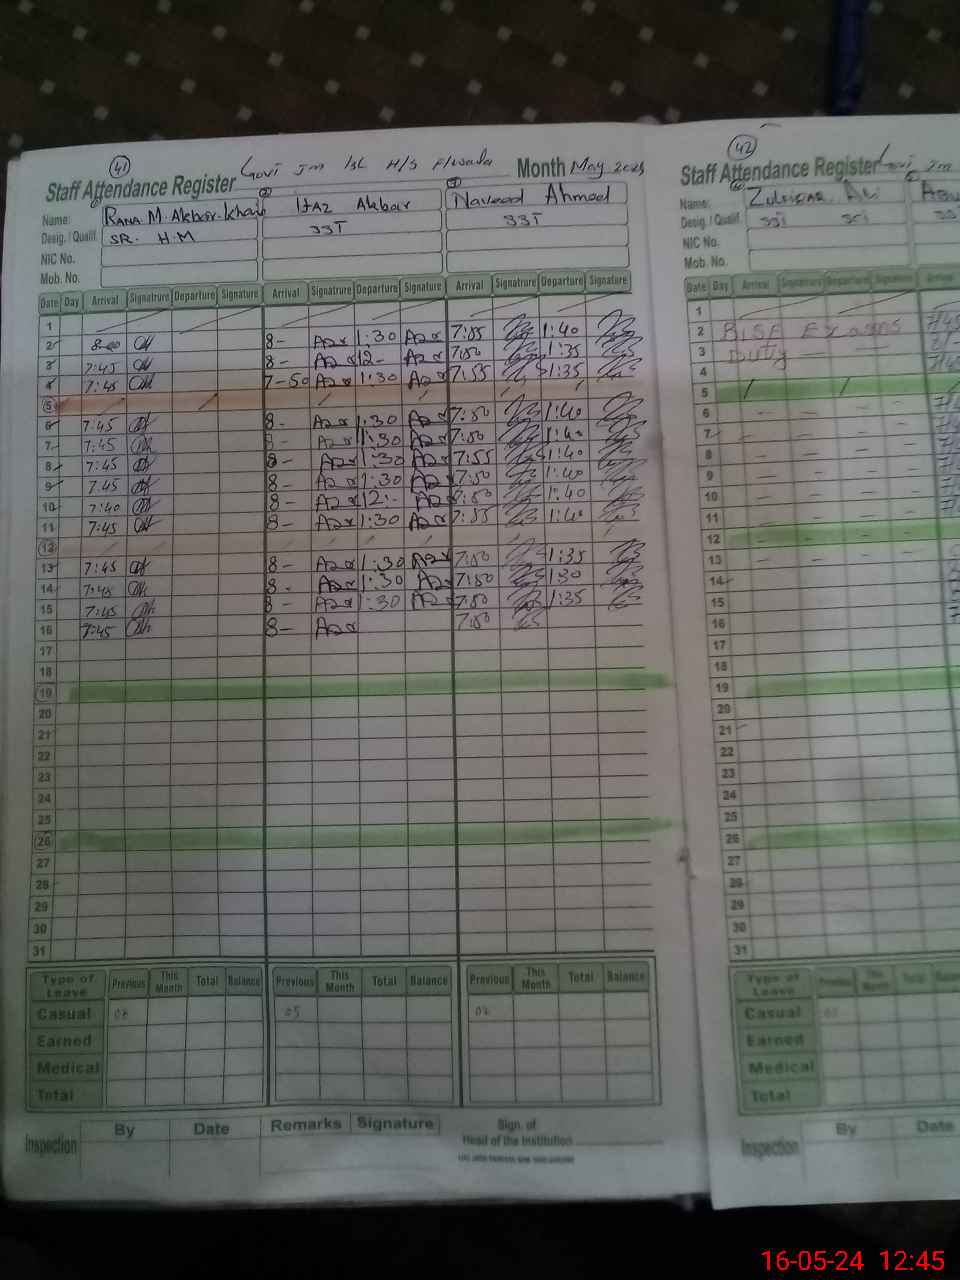 41
Staff Attendance Register
Month May 202
Name: RANA M. Akbar Khan Ijaz Akbar Naveed Ahmed
Desig. / Qualif. SR. H.M SST SST
NIC No.
Mob. No.
Date Day Arrival Signature Departure Signature Arrival Signature Departure Signature Arrival Signature Departure Signature
1
2 8-00 8- 1:30 7:55 1:40
3 7:45 8- 12- 7:50 1:35
4 7:45 7-50 1:30 7:55 1:35
5
6 7:45 8- 1:30 7:50 1:40
7 7:45 8- 1:30 7:50 1:40
8 7:45 8- 1:30 7:55 1:40
9 7:45 8- 1:30 7:50 1:40
10 7:40 8- 12:- 7:50 1:40
11 7:45 8- 1:30 7:55 1:40
12
13 7:45 8- 1:30 7:50 1:35
14 7:45 8- 1:30 7:50 1:30
15 7:45 8- 1:30 7:50 1:35
16 7:45 8- 7:50
17
18
19
20
21
22
23
24
25
26
27
28
29
30
31
Type of Leave Previous This Month Total Balance Previous This Month Total Balance Previous This Month Total Balance
Casual 05
Earned
Medical
Total
Inspection By Date Remarks Signature Sign. of
Head of the Institution
42
Staff Attendance Register
Name: Zulfiqar Ali
Desig. / Qualif. SST
NIC No.
Mob. No.
Date Day Arrival Signature Departure Signature Arrival
1
2 BISE Exams
3 Duty
4
5
6
7
8
9
10
11
12
13
14
15
16
17
18
19
20
21
22
23
24
25
26
27
28
29
30
31
Type of Leave Previous This Month Total Balance
Casual
Earned
Medical
Total
Inspection By Date
16-05-24 12:45